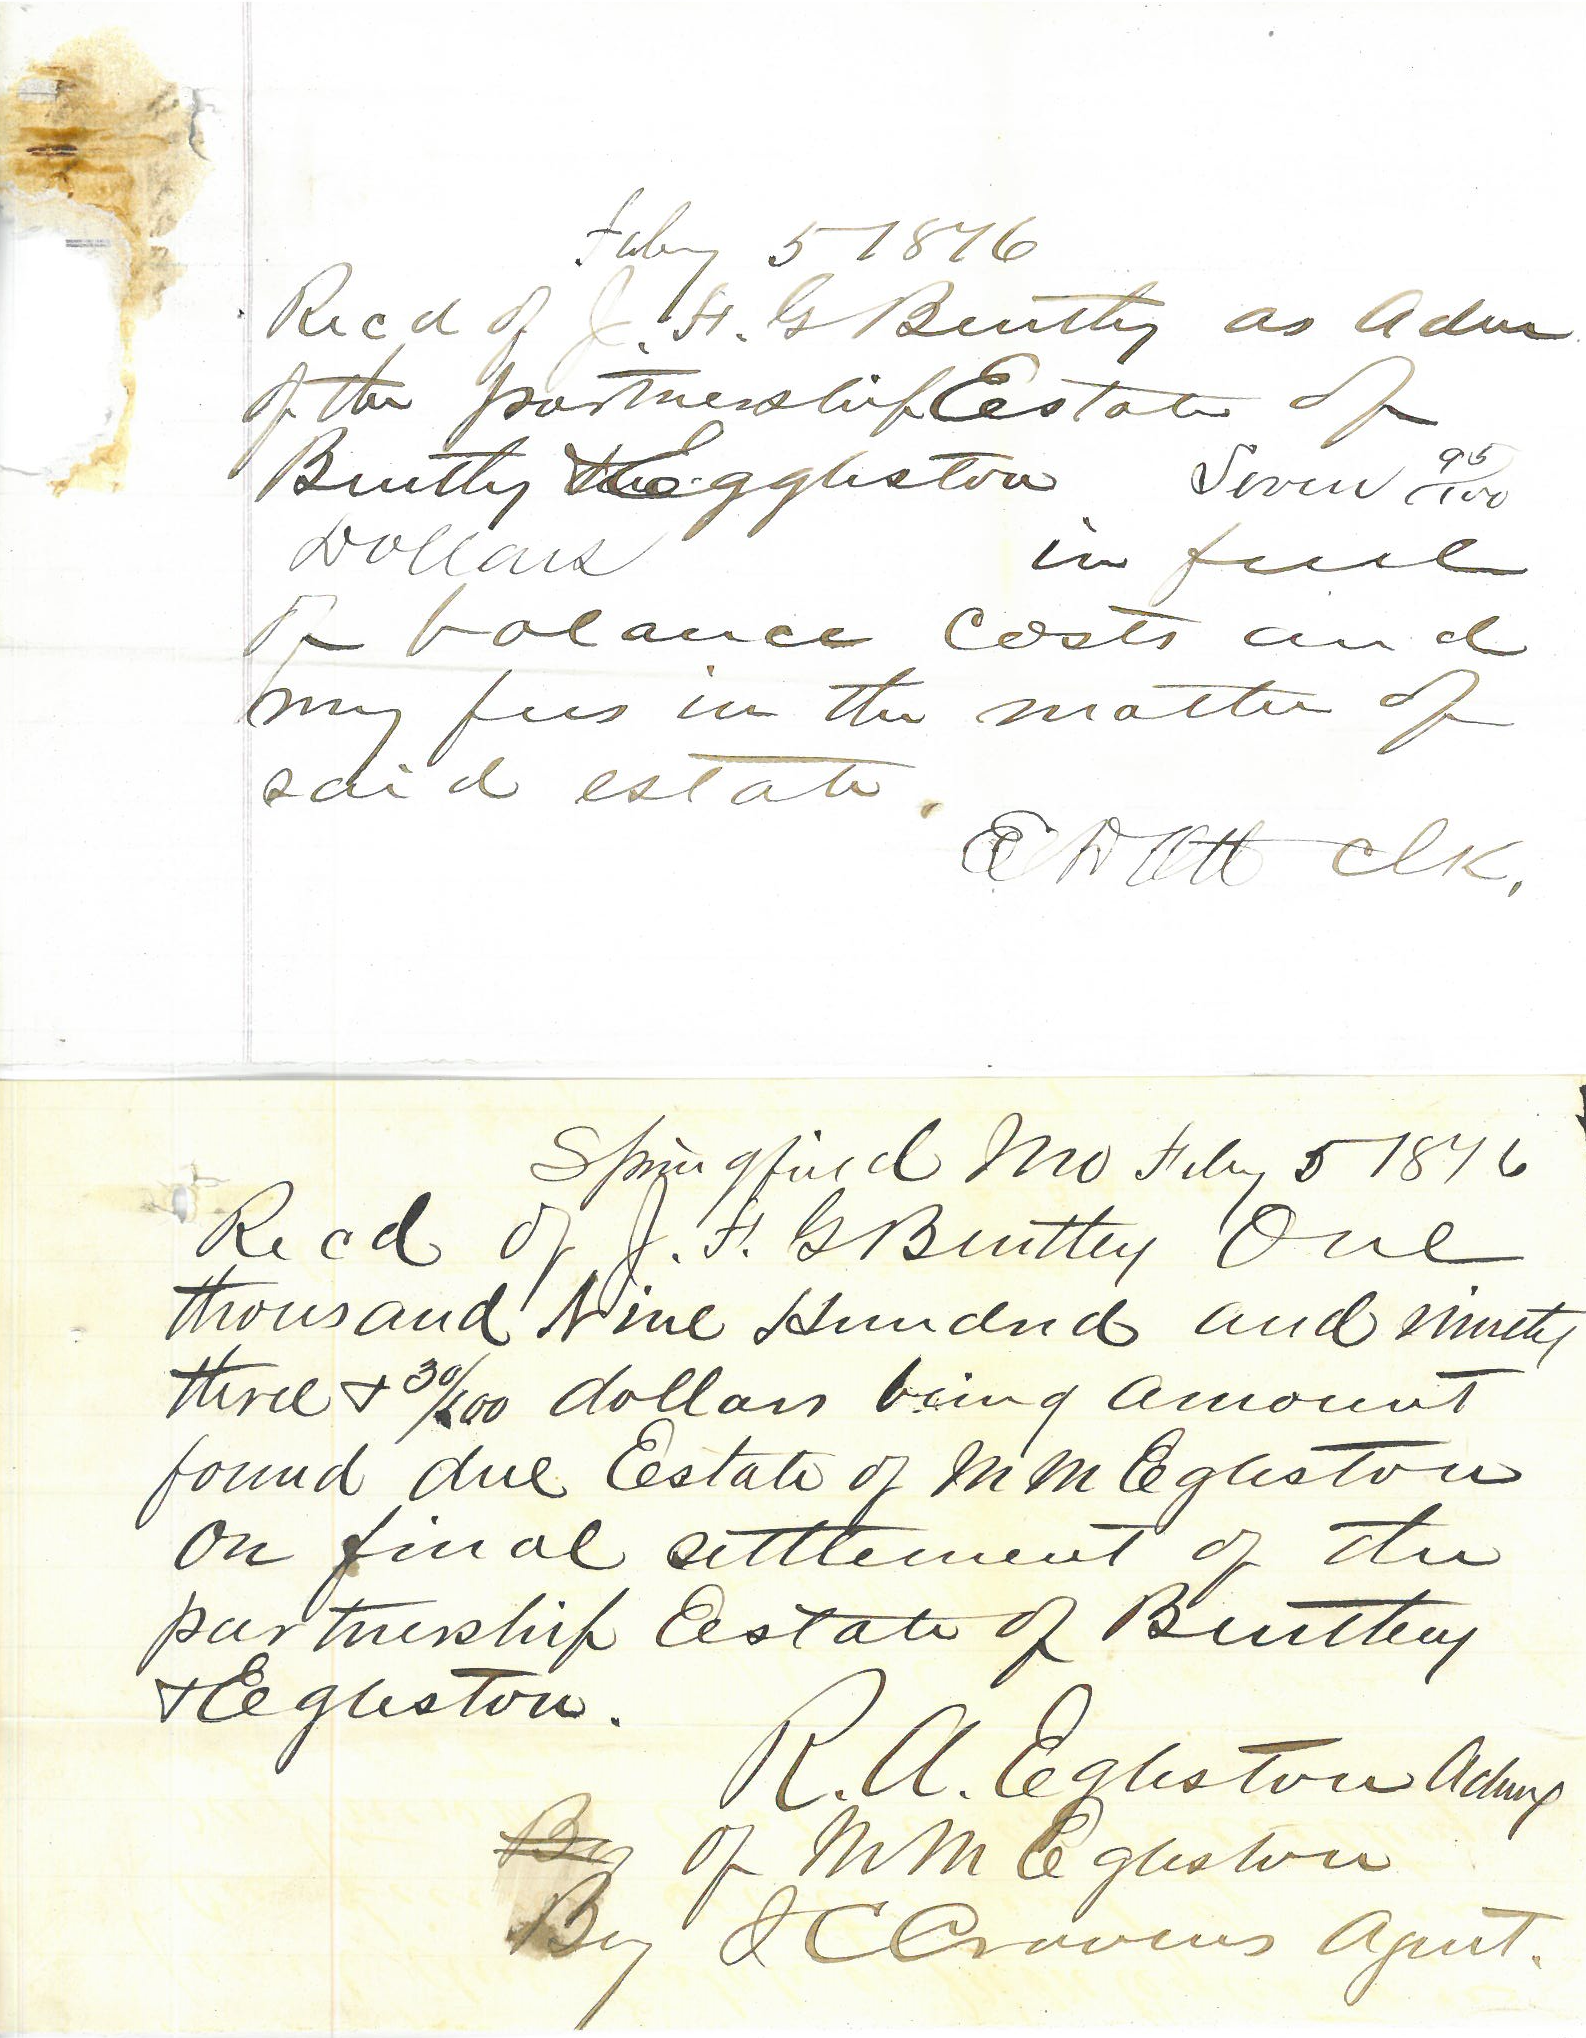 Feby 5 1876
Recd of J. F. G Bentley as Adm
of the partnership Estate of
Bentley & Eggleston Seven 95/100
Dollars in full
of balance Costs and
my fees in the matter of
said estate.
E D Ott Clk.
Springfield Mo Feby 5 1876
Recd of J. F. G Bentley One
thousand Nine Hundred and ninety
three & 30/100 dollars being amount
found due Estate of M M Egleston
On final settlement of the
partnership Estate of Bentley
& Egleston.
R. A. Egleston Admx
By of M M Egleston
By J C Cravens Agent.